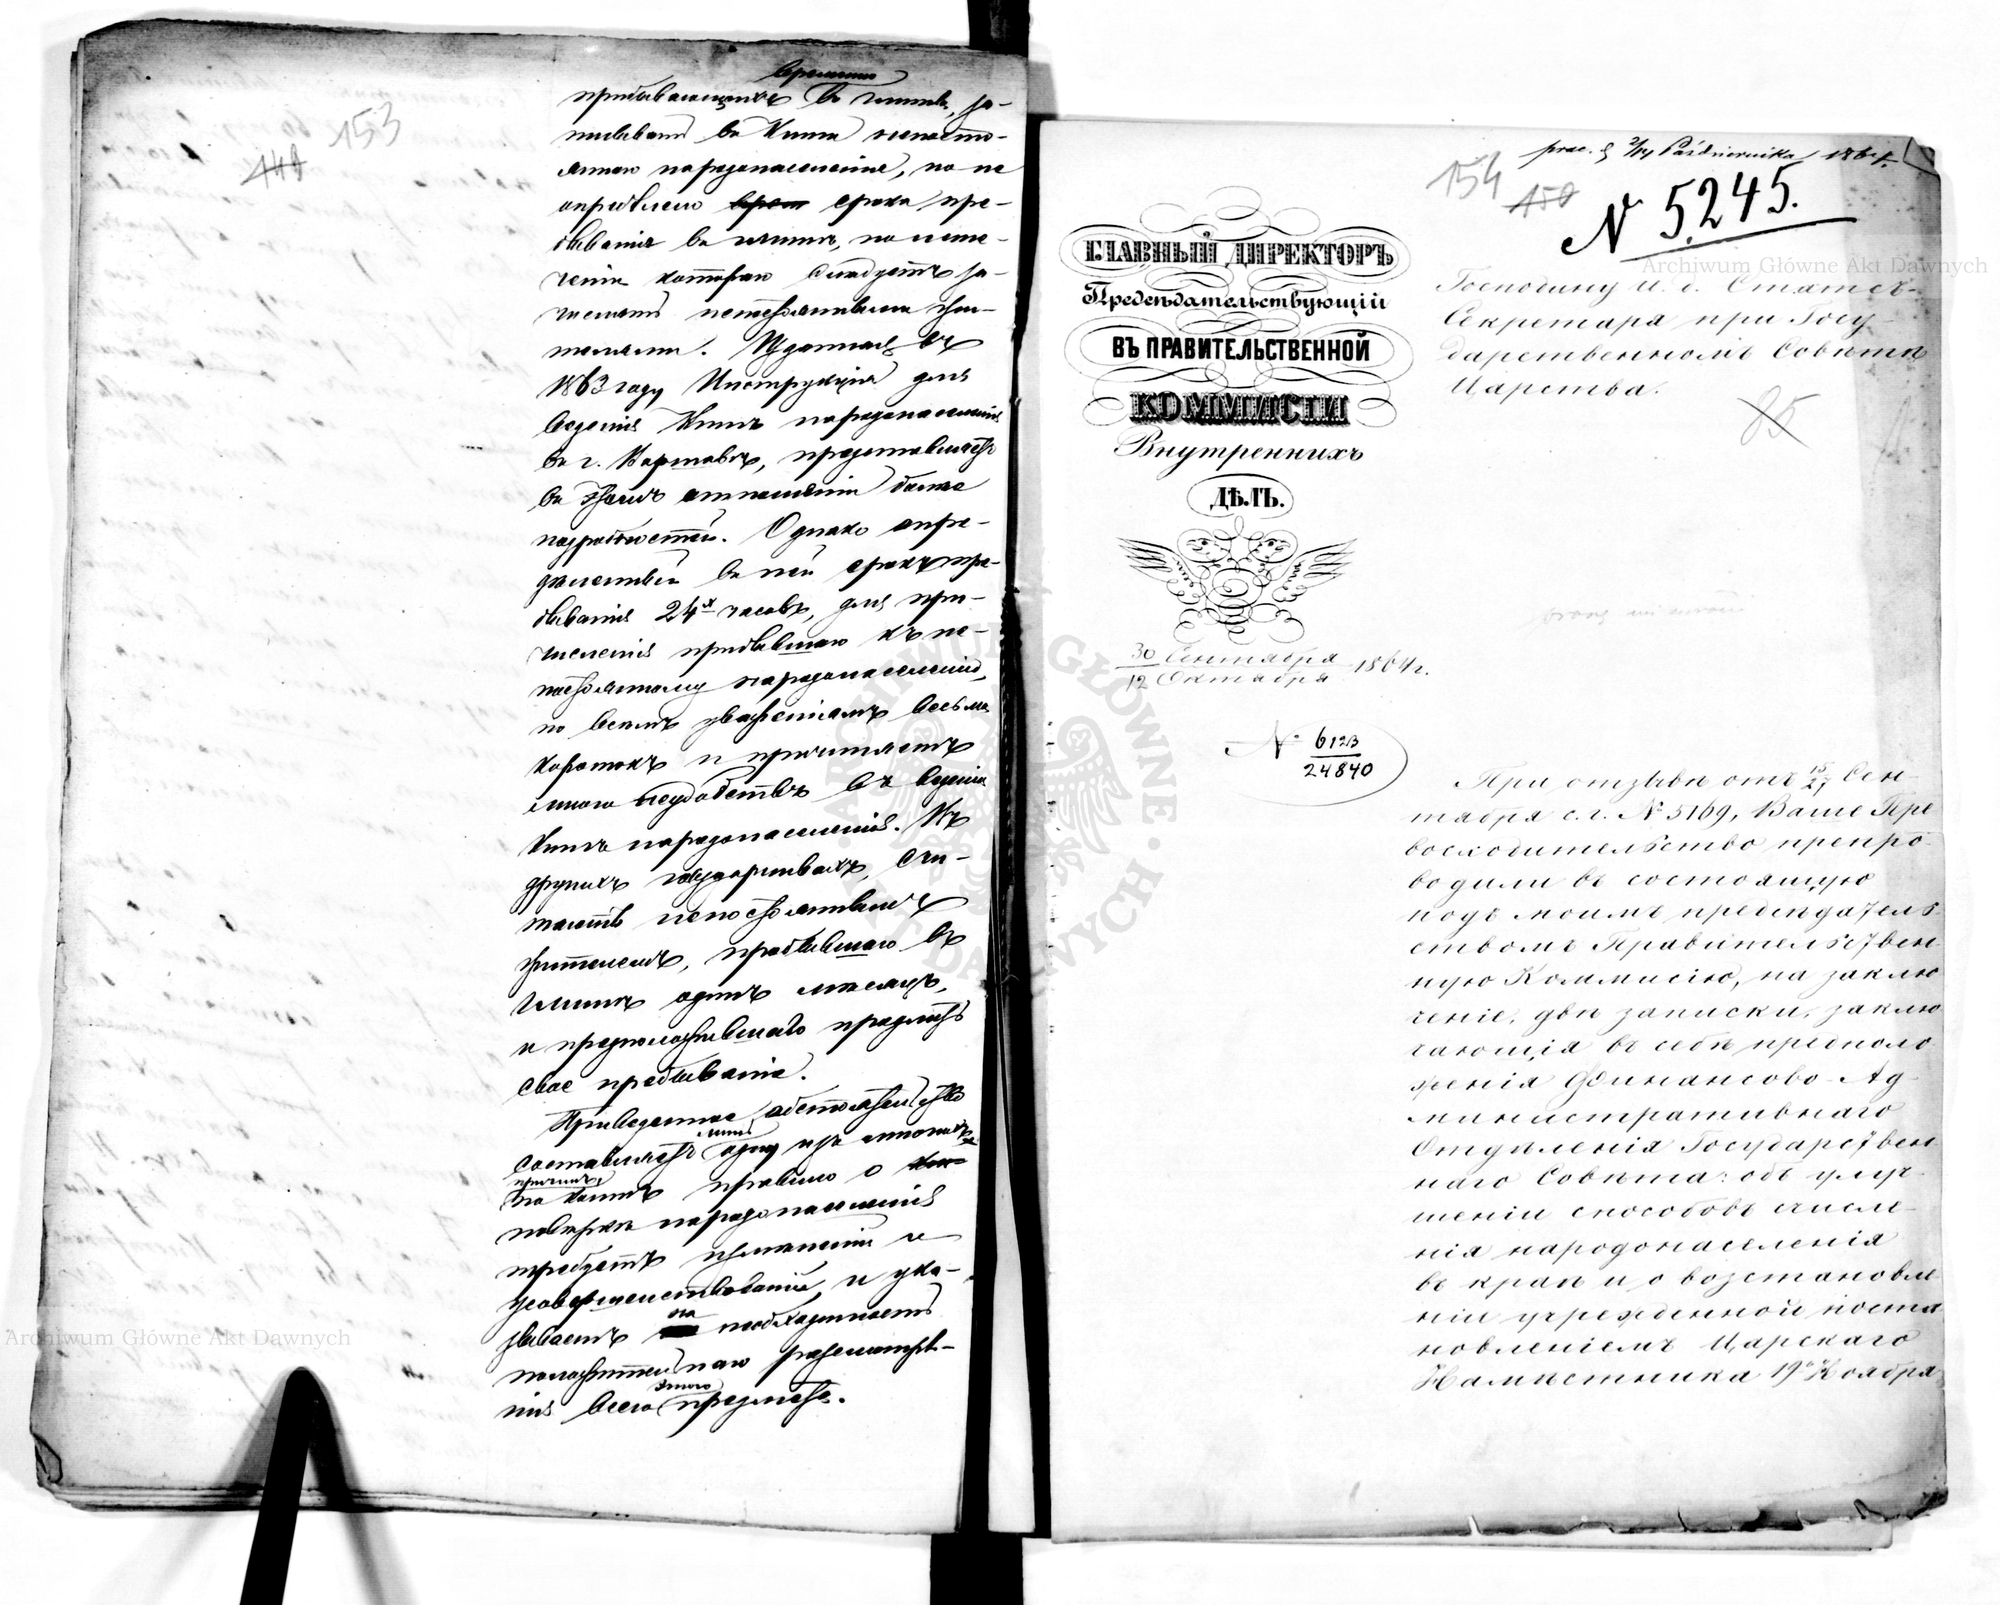 153
149
временно
прибывающихъ въ гмину, за-
писывать въ Книги непосто-
яннаго народонаселенія, но не
опредѣлено срока пре-
быванія въ гминѣ, по исте-
ченіи котораго слѣдуетъ за-
числять непостоянными жи-
телями. Изданная въ
1863 году Инструкція для
веденія Книгъ народонаселенія
въ г. Варшавѣ, представляетъ
въ этомъ отношеніи болѣе
подробностей. Однако опре-
дѣленный въ ней срокъ пре-
быванія 24х часовъ, для при-
численія прибывшаго къ не-
постоянному народонаселенію,
по всѣмъ уваженіямъ весьма
коротокъ и причиняетъ
много неудобствъ въ веденіи
Книгъ народонаселенія. Въ
другихъ государствахъ, счи-
таютъ непостояннымъ
жителемъ, пробывшаго въ
гминѣ одинъ мѣсяцъ,
и предположившаго продлить
свое пребываніе.
Приведенное обстоятельство
составляетъ лишь одну изъ многихъ
причинъ, по коимъ правило о
повѣркѣ народонаселенія
требуетъ измѣненія и
усовершенствованія, и ука-
зываетъ на необходимость
положительнаго разсмотрѣ-
нія всего этого предмета.
prac. d. 2/14 Października 1864 r.
154
150
N 5245.
ГЛАВНЫЙ ДИРЕКТОРЪ
Предсѣдательствующій
ВЪ ПРАВИТЕЛЬСТВЕННОЙ
КОММИСІИ
Внутреннихъ
ДѢЛЪ.
30 Сентября
12 Октября 1864 г.
№ 6123
24840
Господину и. д. Статсъ-
Секретаря при Госу-
дарственномъ Совѣтѣ
Царства.
85
При отзывѣ отъ 15/27 Сен-
тября с. г. № 5169, Ваше Пре
восходительство препро-
водили въ состоящую
подъ моимъ предсѣдатель-
ствомъ Правительствен-
ную Коммисію, на заклю
ченіе, двѣ записки, заклю
чающія въ себѣ предполо
женія Финансово-Ад-
министративнаго
Отдѣленія Государствен
наго Совѣта: объ улуч-
шеніи способовъ счисле-
нія народонаселенія
въ краѣ и о возстановле
ніи учрежденной поста
новленіемъ Царскаго
Намѣстника 19го Ноября
Archiwum Główne Akt Dawnych
Archiwum Główne Akt Dawnych
ARCHIWUM GŁÓWNE AKT DAWNYCH